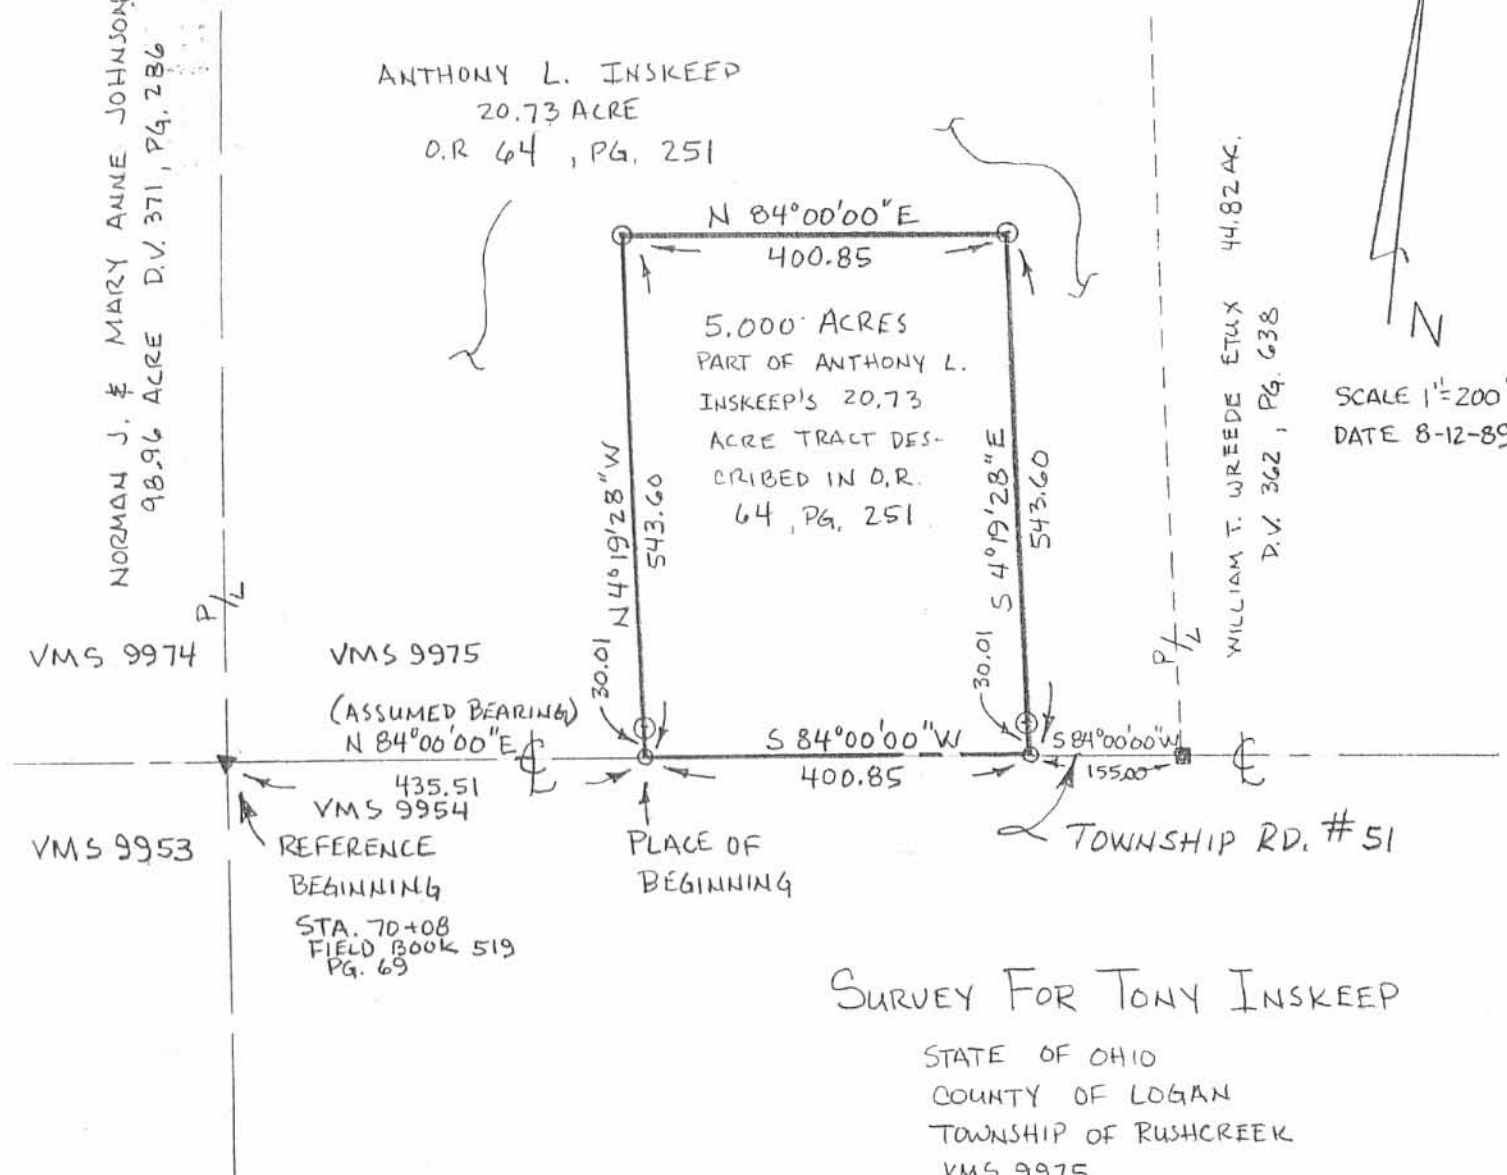 NORMAN J. & MARY ANNE JOHNSON
98.96 ACRE D.V. 371, PG. 286
ANTHONY L. INSKEEP
20.73 ACRE
O.R 64, PG. 251
N 84°00'00" E
400.85
5.000 ACRES
PART OF ANTHONY L.
INSKEEP'S 20.73
ACRE TRACT DES-
CRIBED IN O.R.
64, PG. 251
N 4°19'28" W
543.60
30.01
S 4°19'28" E
543.60
30.01
WILLIAM T. WREEDE ETUX 44.82 AC.
D.V. 362, PG. 638
N
SCALE 1"=200'
DATE 8-12-89
P/L
P/L
VMS 9974
VMS 9975
(ASSUMED BEARING)
N 84°00'00" E
℄
435.51
VMS 9954
VMS 9953
S 84°00'00" W
400.85
S 84°00'00" W
155.00
℄
REFERENCE
BEGINNING
STA. 70+08
FIELD BOOK 519
PG. 69
PLACE OF
BEGINNING
TOWNSHIP RD. #51
SURVEY FOR TONY INSKEEP
STATE OF OHIO
COUNTY OF LOGAN
TOWNSHIP OF RUSHCREEK
VMS 9975